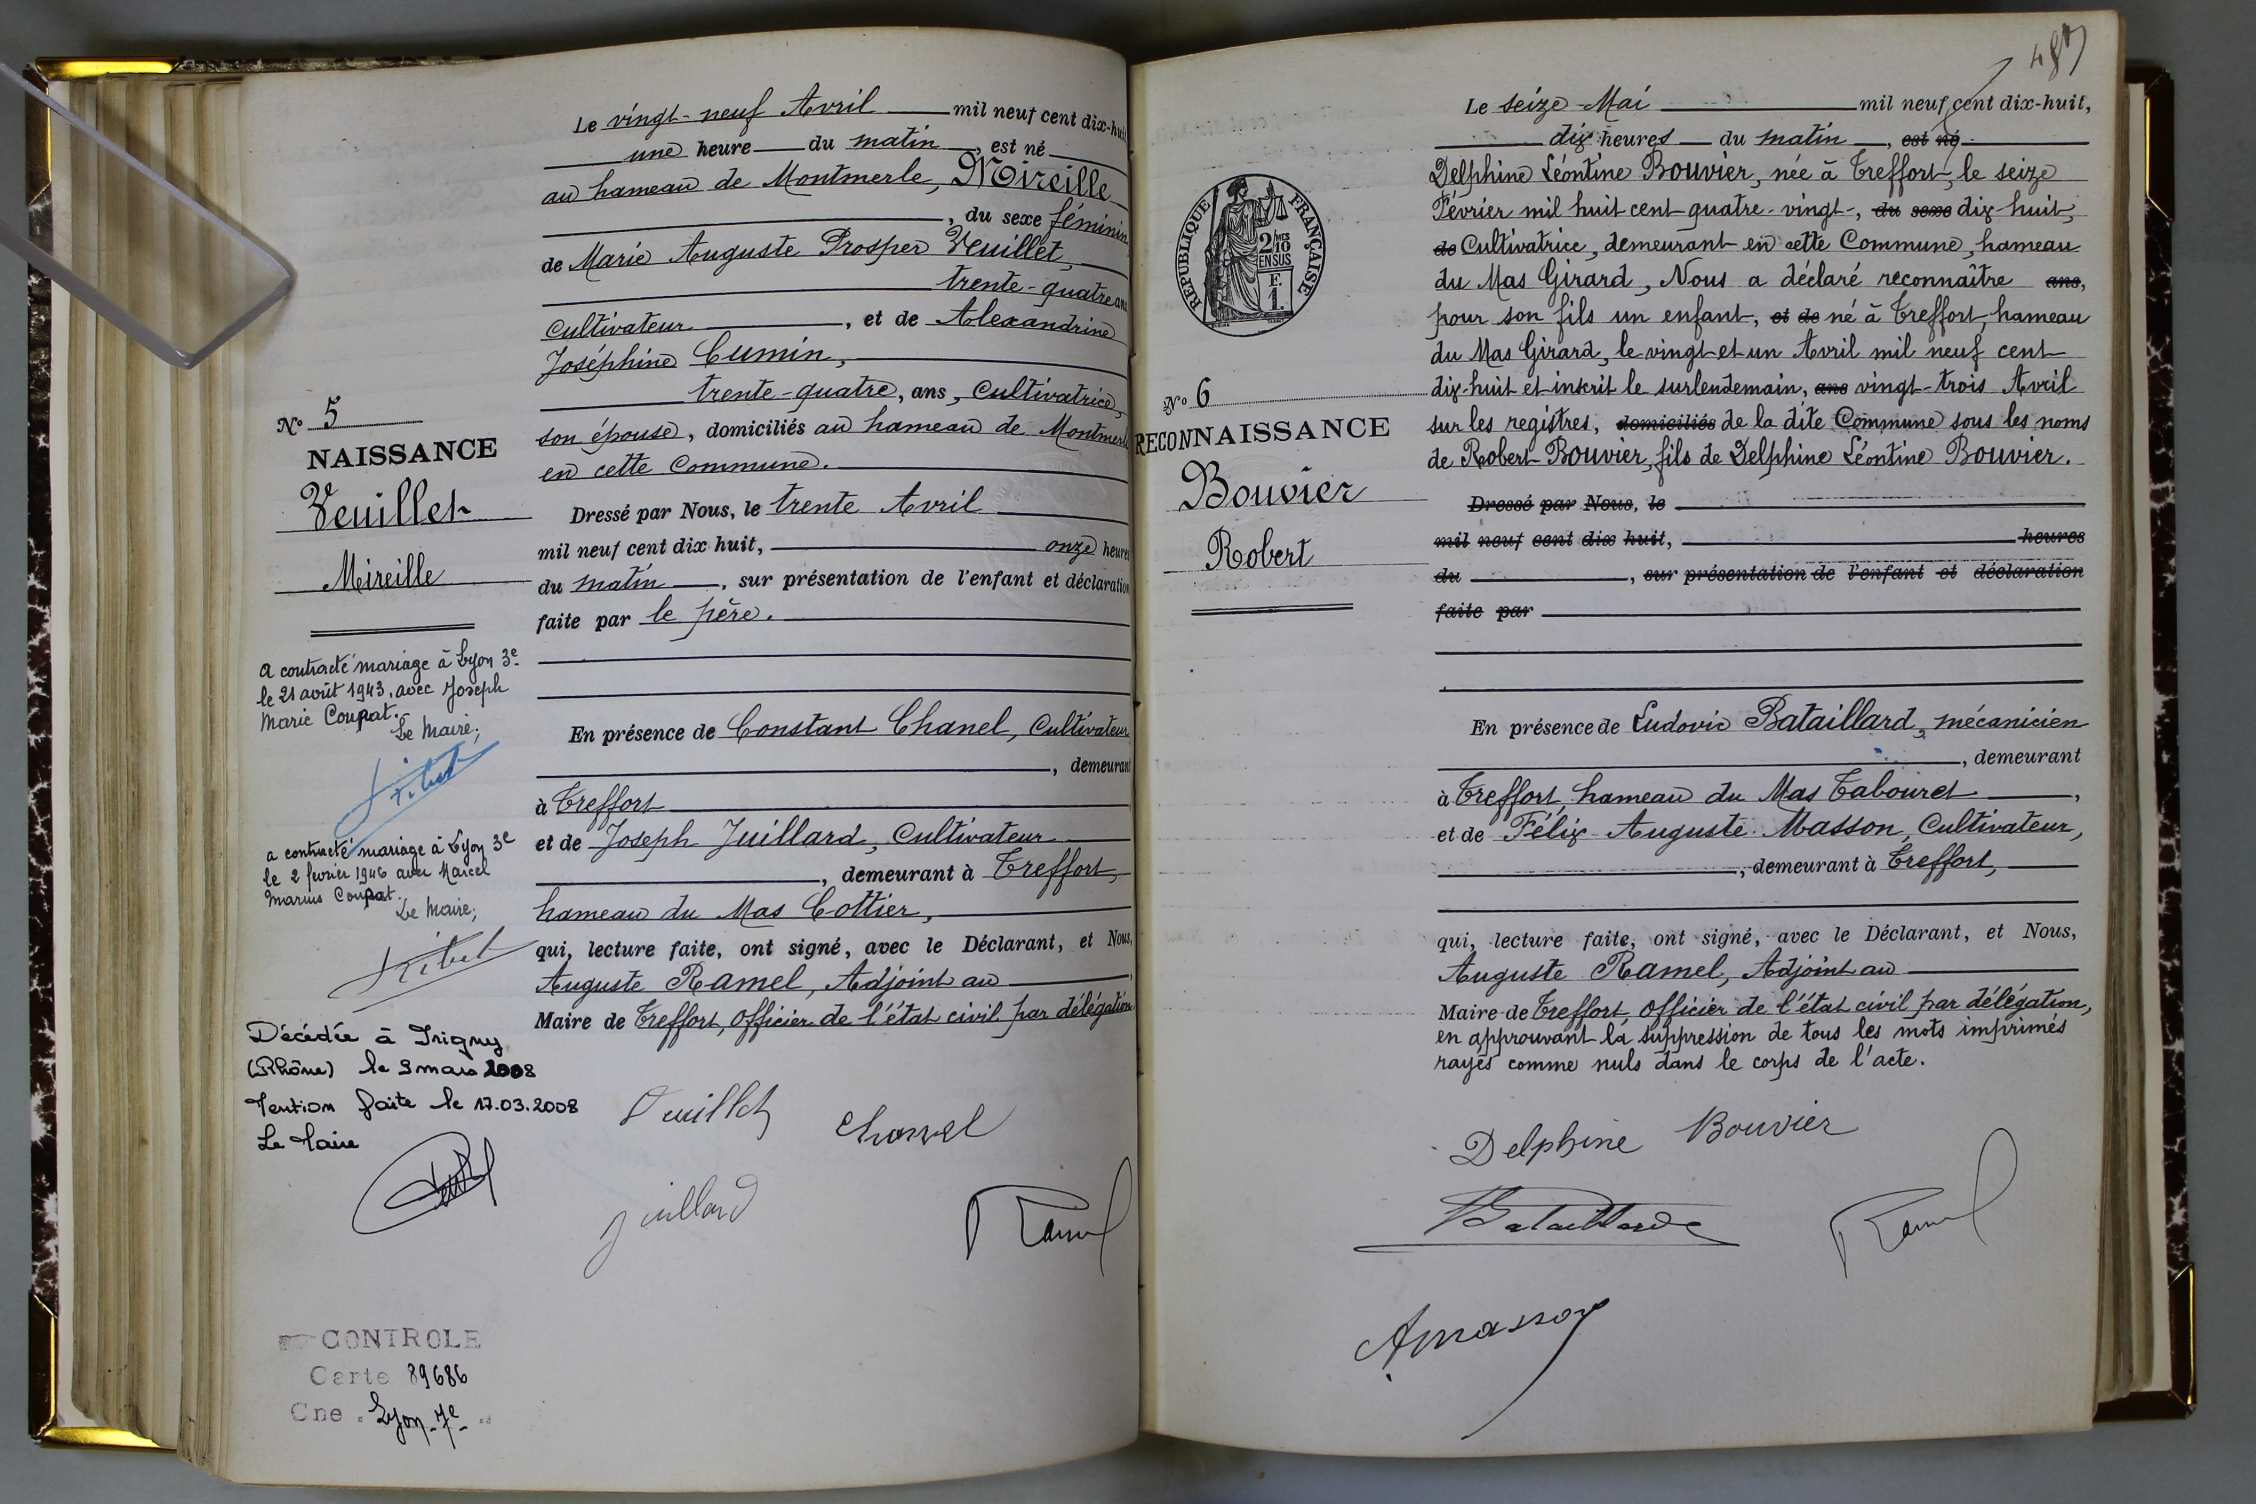 Le vingt-neuf Avril mil neuf cent dix-huit
une heure du matin, est né
au hameau de Montmerle, Mireille
, du sexe féminin,
de Marie Auguste Prosper Veuillet,
trente-quatre ans
Cultivateur, et de Alexandrine
Joséphine Cumin,
trente-quatre, ans, Cultivatrice,
son épouse, domiciliés au hameau de Montmerle
en cette Commune.
Dressé par Nous, le trente Avril
mil neuf cent dix huit, onze heures
du matin, sur présentation de l'enfant et déclaration
faite par le père.
En présence de Constant Chanel, Cultivateur
, demeurant
à Treffort
et de Joseph Juillard, Cultivateur
, demeurant à Treffort,
hameau du Mas Cottier,
qui, lecture faite, ont signé, avec le Déclarant, et Nous,
Auguste Ramel, Adjoint au
Maire de Treffort, officier de l'état civil par délégation
Veuillet
Chanel
Juillard
Ramel
No 5
NAISSANCE
Veuillet
Mireille
a contracté mariage à Lyon 3e
le 21 août 1943, avec Joseph
Marie Coupat.
Le Maire;
a contracté mariage à Lyon 3e
le 2 février 1946 avec Marcel
Marius Coupat.
Le Maire;
Décédée à Irigny
(Rhône) le 9 mars 2008
Mention faite le 17.03.2008
Le Maire
CONTROLE
Carte 89686
Cne Lyon-7e
487
REPUBLIQUE FRANÇAISE
2/10es
EN SUS
F.
1.
No 6
RECONNAISSANCE
Bouvier
Robert
Le seize Mai mil neuf cent dix-huit,
dix heures du matin, est né
Delphine Léontine Bouvier, née à Treffort, le seize
Février mil huit cent quatre-vingt-, du sexe dix-huit,
de Cultivatrice, demeurant en cette Commune, hameau
du Mas Girard, Nous a déclaré reconnaître ans,
pour son fils un enfant, et de né à Treffort, hameau
du Mas Girard, le vingt et un Avril mil neuf cent
dix-huit et inscrit le surlendemain, ans vingt-trois Avril
sur les registres, domiciliés de la dite Commune sous les noms
de Robert Bouvier, fils de Delphine Léontine Bouvier.
Dressé par Nous, le
mil neuf cent dix huit, heures
du , sur présentation de l'enfant et déclaration
faite par
En présence de Ludovic Bataillard, mécanicien
, demeurant
à Treffort, hameau du Mas Tabouret,
et de Félix Auguste Masson, Cultivateur,
, demeurant à Treffort,
qui, lecture faite, ont signé, avec le Déclarant, et Nous,
Auguste Ramel, Adjoint au
Maire de Treffort, officier de l'état civil par délégation,
en approuvant la suppression de tous les mots imprimés
rayés comme nuls dans le corps de l'acte.
Delphine Bouvier
Bataillard
Ramel
A Masson